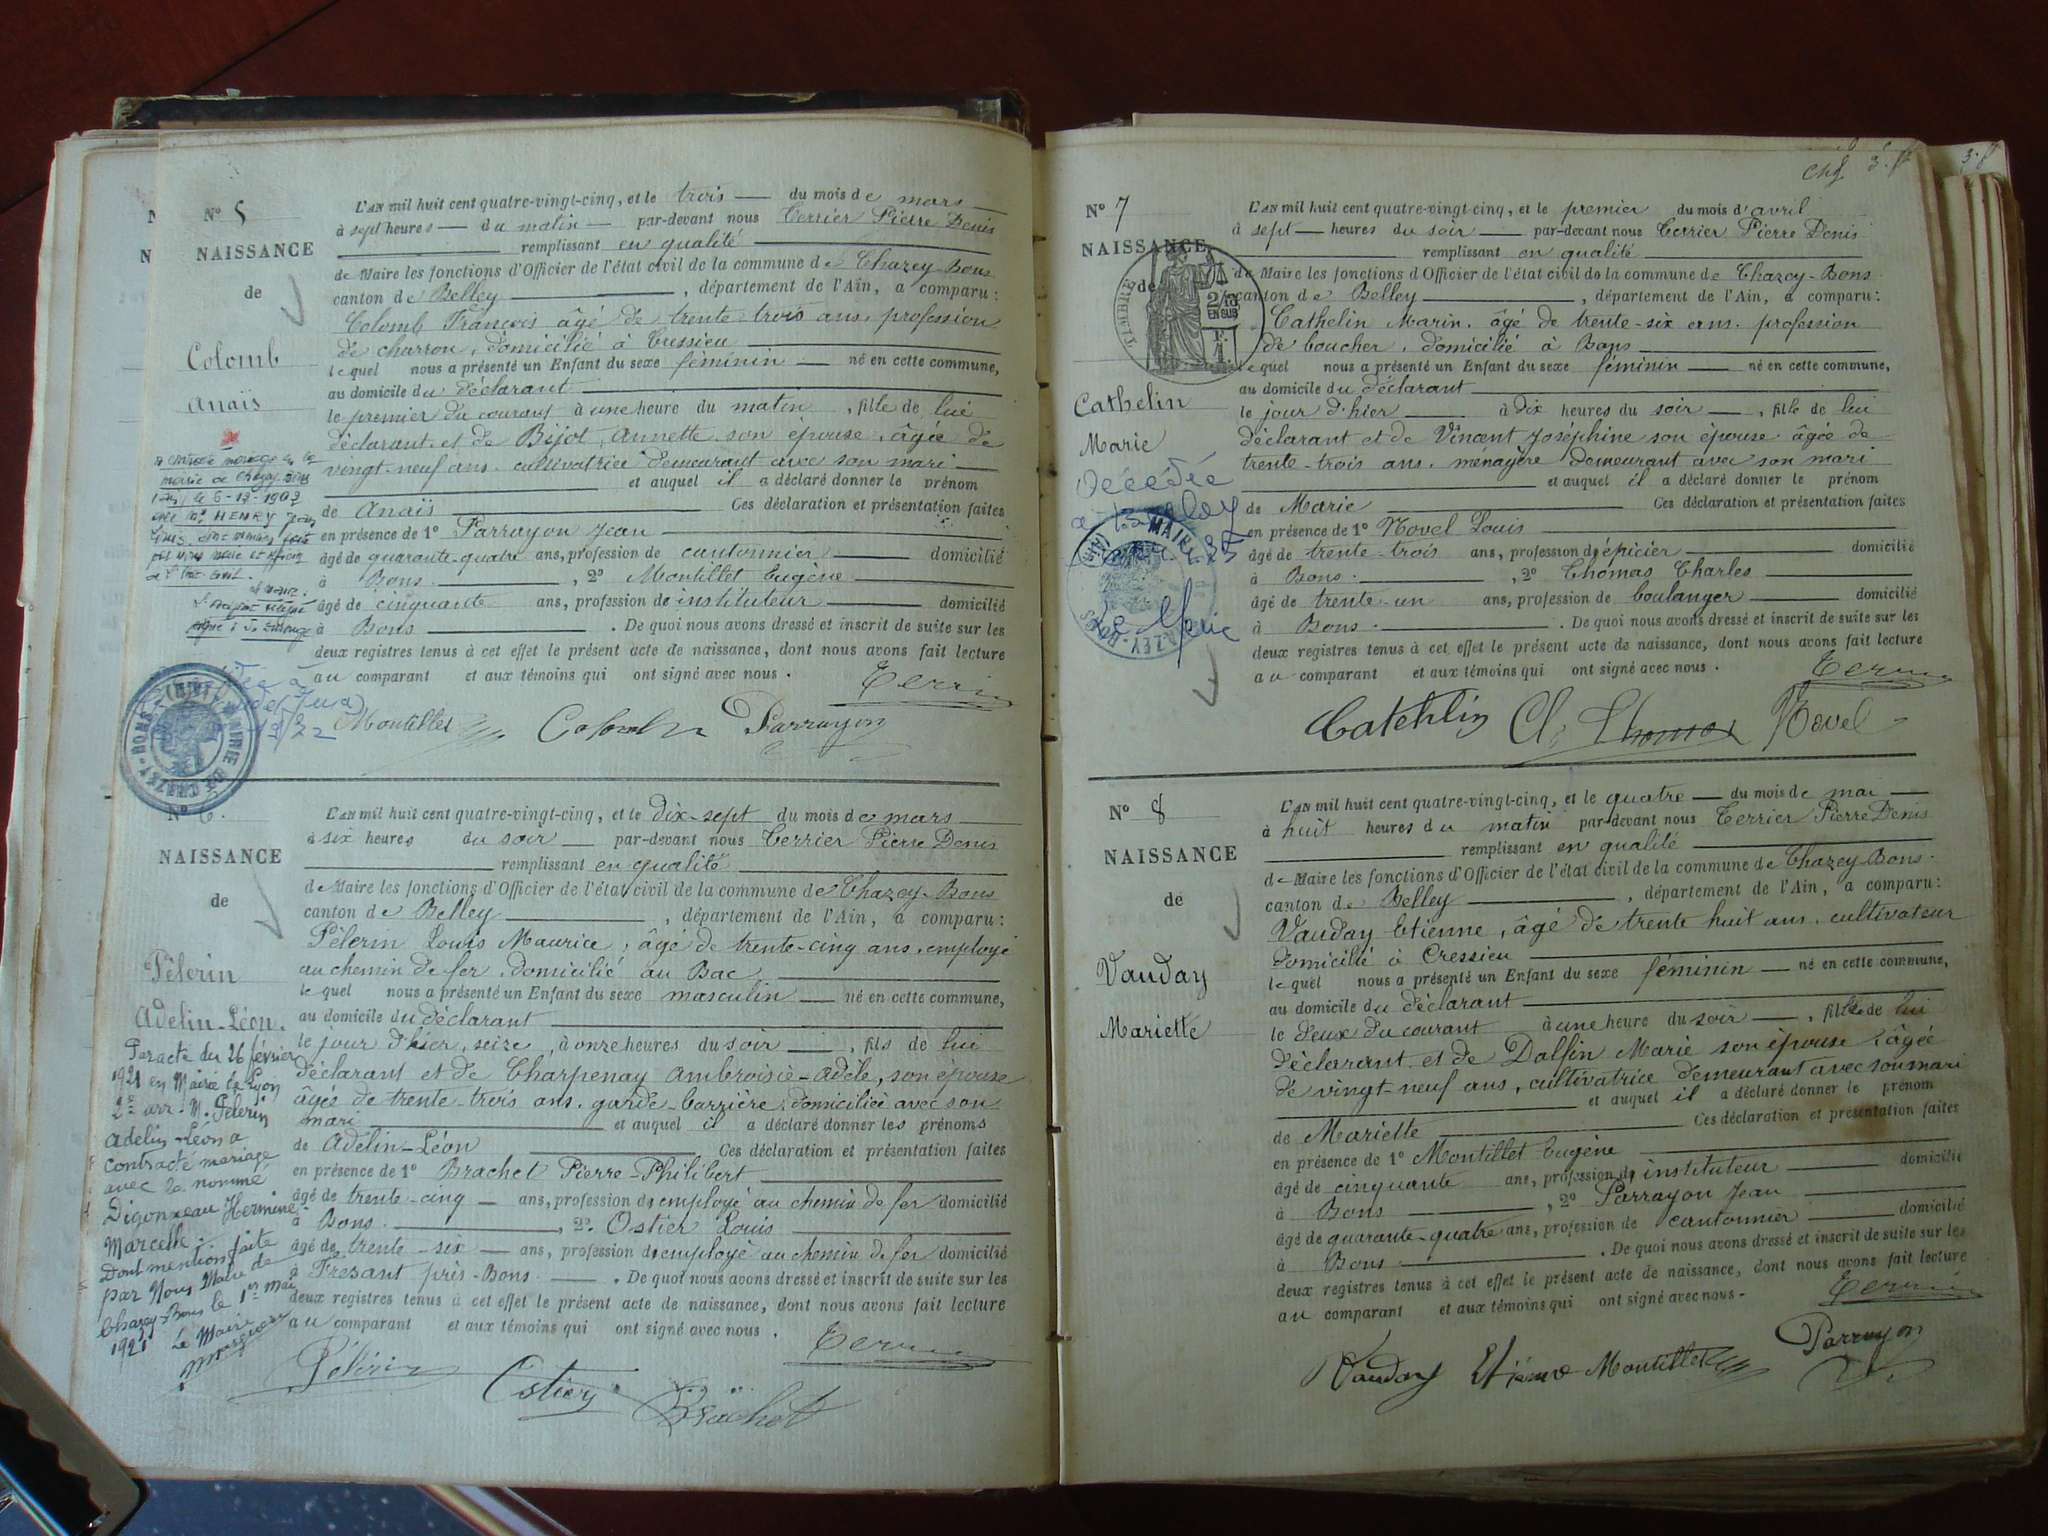 N° 5
NAISSANCE
de
Colomb
Anaïs
L'AN mil huit cent quatre-vingt-cinq, et le trois du mois de mars
à sept heures du matin par-devant nous Terrier Pierre Denis
remplissant en qualité
de Maire les fonctions d'Officier de l'état civil de la commune de Chazey-Bons
canton de Belley, département de l'Ain, a comparu:
Colomb François âgé de trente-trois ans, profession
de charron, domicilié à Cressieu
lequel nous a présenté un Enfant du sexe féminin né en cette commune,
au domicile du déclarant
le premier du courant à une heure du matin, fille de lui
déclarant et de Bijot, Annette son épouse, âgée de
vingt-neuf ans, cultivatrice demeurant avec son mari
et auquel il a déclaré donner le prénom
de Anaïs Ces déclaration et présentation faites
en présence de 1° Parrayon Jean
âgé de quarante-quatre ans, profession de cantonnier domicilié
à Bons, 2° Montillet Eugène
âgé de cinquante ans, profession de instituteur domicilié
à Bons. De quoi nous avons dressé et inscrit de suite sur les
deux registres tenus à cet effet le présent acte de naissance, dont nous avons fait lecture
au comparant et aux témoins qui ont signé avec nous.
Montillet Colomb Parrayon
mairie de Chazey-Bons
HENRY
MAIRIE DE CHAZEY-BONS (AIN)
NAISSANCE
de
Pèlerin
Adelin-Léon.
L'AN mil huit cent quatre-vingt-cinq, et le dix-sept du mois de mars
à six heures du soir par-devant nous Terrier Pierre Denis
remplissant en qualité
de Maire les fonctions d'Officier de l'état civil de la commune de Chazey-Bons
canton de Belley, département de l'Ain, a comparu:
Pèlerin Louis Maurice, âgé de trente-cinq ans, employé
au chemin de fer, domicilié au Bac
lequel nous a présenté un Enfant du sexe masculin né en cette commune,
au domicile du déclarant
le jour d'hier, seize, à onze heures du soir, fils de lui
déclarant et de Charpenay Ambroisie-Adèle, son épouse
âgée de trente-trois ans, garde-barrière, domiciliée avec son
mari et auquel il a déclaré donner les prénoms
de Adelin-Léon Ces déclaration et présentation faites
en présence de 1° Brachet Pierre-Philibert
âgé de trente-cinq ans, profession de employé au chemin de fer domicilié
à Bons, 2° Ostier Louis
âgé de trente-six ans, profession de employé au chemin de fer domicilié
à près-Bons. De quoi nous avons dressé et inscrit de suite sur les
deux registres tenus à cet effet le présent acte de naissance, dont nous avons fait lecture
au comparant et aux témoins qui ont signé avec nous.
Pèlerin Ostier Brachet
Par acte du 26 février
1921 en Mairie de Lyon
2e arr. M. Pèlerin
Adelin-Léon a
contracté mariage
avec la nommé
Digonneau Hermine
Marcelle.
Dont mention faite
par Nous Maire de
Chazey-Bons le 1er mai
1921 Le Maire
N° 7
NAISSANCE
de
TIMBRE
2/10 EN SUS
Cathelin
Marie
Décédée
L'AN mil huit cent quatre-vingt-cinq, et le premier du mois d'avril
à sept heures du soir par-devant nous Terrier Pierre Denis
remplissant en qualité
de Maire les fonctions d'Officier de l'état civil de la commune de Chazey-Bons
canton de Belley, département de l'Ain, a comparu:
Cathelin Marin, âgé de trente-six ans, profession
de boucher, domicilié à Bons
lequel nous a présenté un Enfant du sexe féminin né en cette commune,
au domicile du déclarant
le jour d'hier à dix heures du soir, fille de lui
déclarant et de Vincent Joséphine son épouse âgée de
trente-trois ans, ménagère demeurant avec son mari
et auquel il a déclaré donner le prénom
de Marie Ces déclaration et présentation faites
en présence de 1° Novel Louis
âgé de trente-trois ans, profession d'épicier domicilié
à Bons, 2° Thomas Charles
âgé de trente-un ans, profession de boulanger domicilié
à Bons. De quoi nous avons dressé et inscrit de suite sur les
deux registres tenus à cet effet le présent acte de naissance, dont nous avons fait lecture
au comparant et aux témoins qui ont signé avec nous.
Catehlin Ch. Thomas Novel
N° 8
NAISSANCE
de
Vauday
Mariette
L'AN mil huit cent quatre-vingt-cinq, et le quatre du mois de mai
à huit heures du matin par-devant nous Terrier Pierre Denis
remplissant en qualité
de Maire les fonctions d'Officier de l'état civil de la commune de Chazey-Bons
canton de Belley, département de l'Ain, a comparu:
Vauday Etienne, âgé de trente huit ans, cultivateur
domicilié à Cressieu
lequel nous a présenté un Enfant du sexe féminin né en cette commune,
au domicile du déclarant
le deux du courant à une heure du soir, fille de lui
déclarant et de Dalfin Marie son épouse, âgée
de vingt-neuf ans, cultivatrice demeurant avec son mari
et auquel il a déclaré donner le prénom
de Mariette Ces déclaration et présentation faites
en présence de 1° Montillet Eugène
âgé de cinquante ans, profession de instituteur domicilié
à Bons, 2° Parrayon Jean
âgé de quarante-quatre ans, profession de cantonnier domicilié
à Bons. De quoi nous avons dressé et inscrit de suite sur les
deux registres tenus à cet effet le présent acte de naissance, dont nous avons fait lecture
au comparant et aux témoins qui ont signé avec nous.
Vauday Etienne Montillet Parrayon